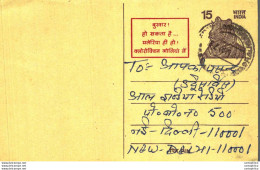 बुखार!
हो सकता है...
मलेरिया ही हो!
क्लोरोक्विन गोलियां लें
15 भारत
INDIA
To: आपकी पसन्द
आल इन्डिया रेडियो
पो० बो० नं० 500
नई- दिल्ली- 110001
NEW- DELHI- 110001